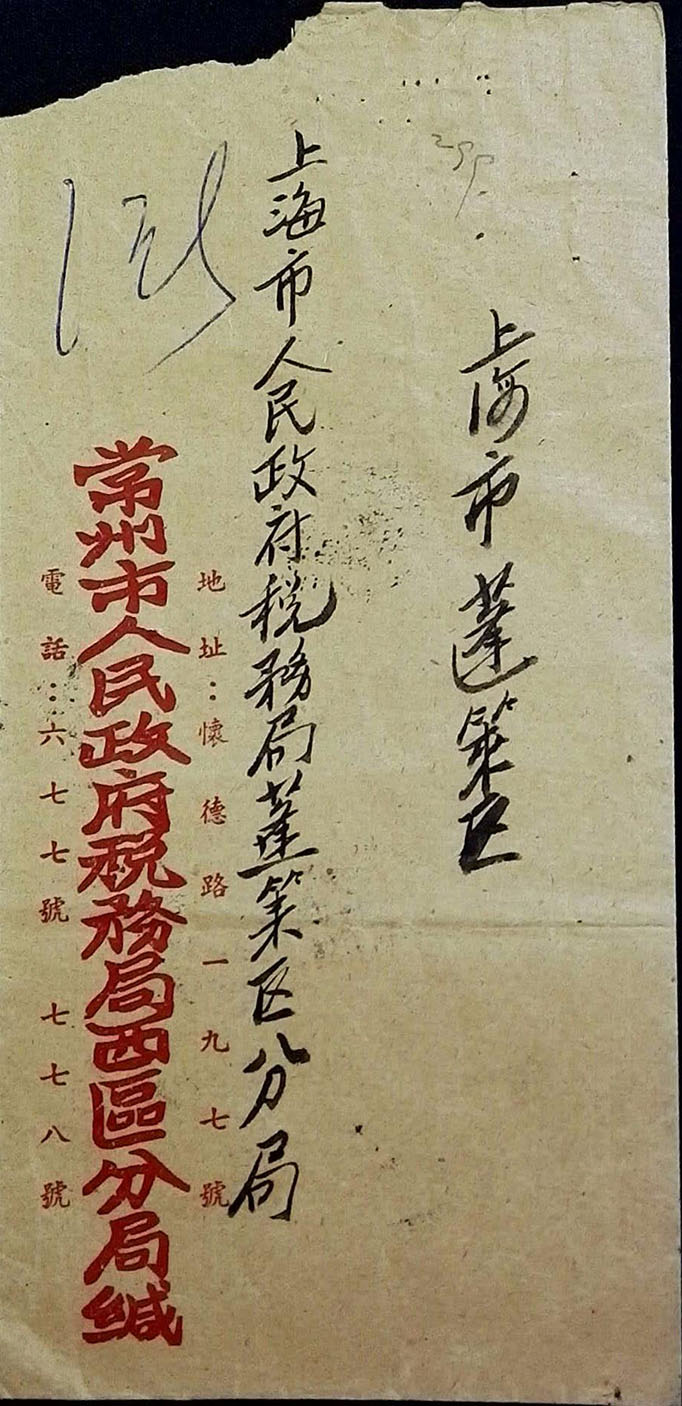 上海市蓬莱区
上海市人民政府税務局蓬莱区分局
地址：懷德路一九七號
常州市人民政府税務局西區分局缄
電話：六七七號 七七八號